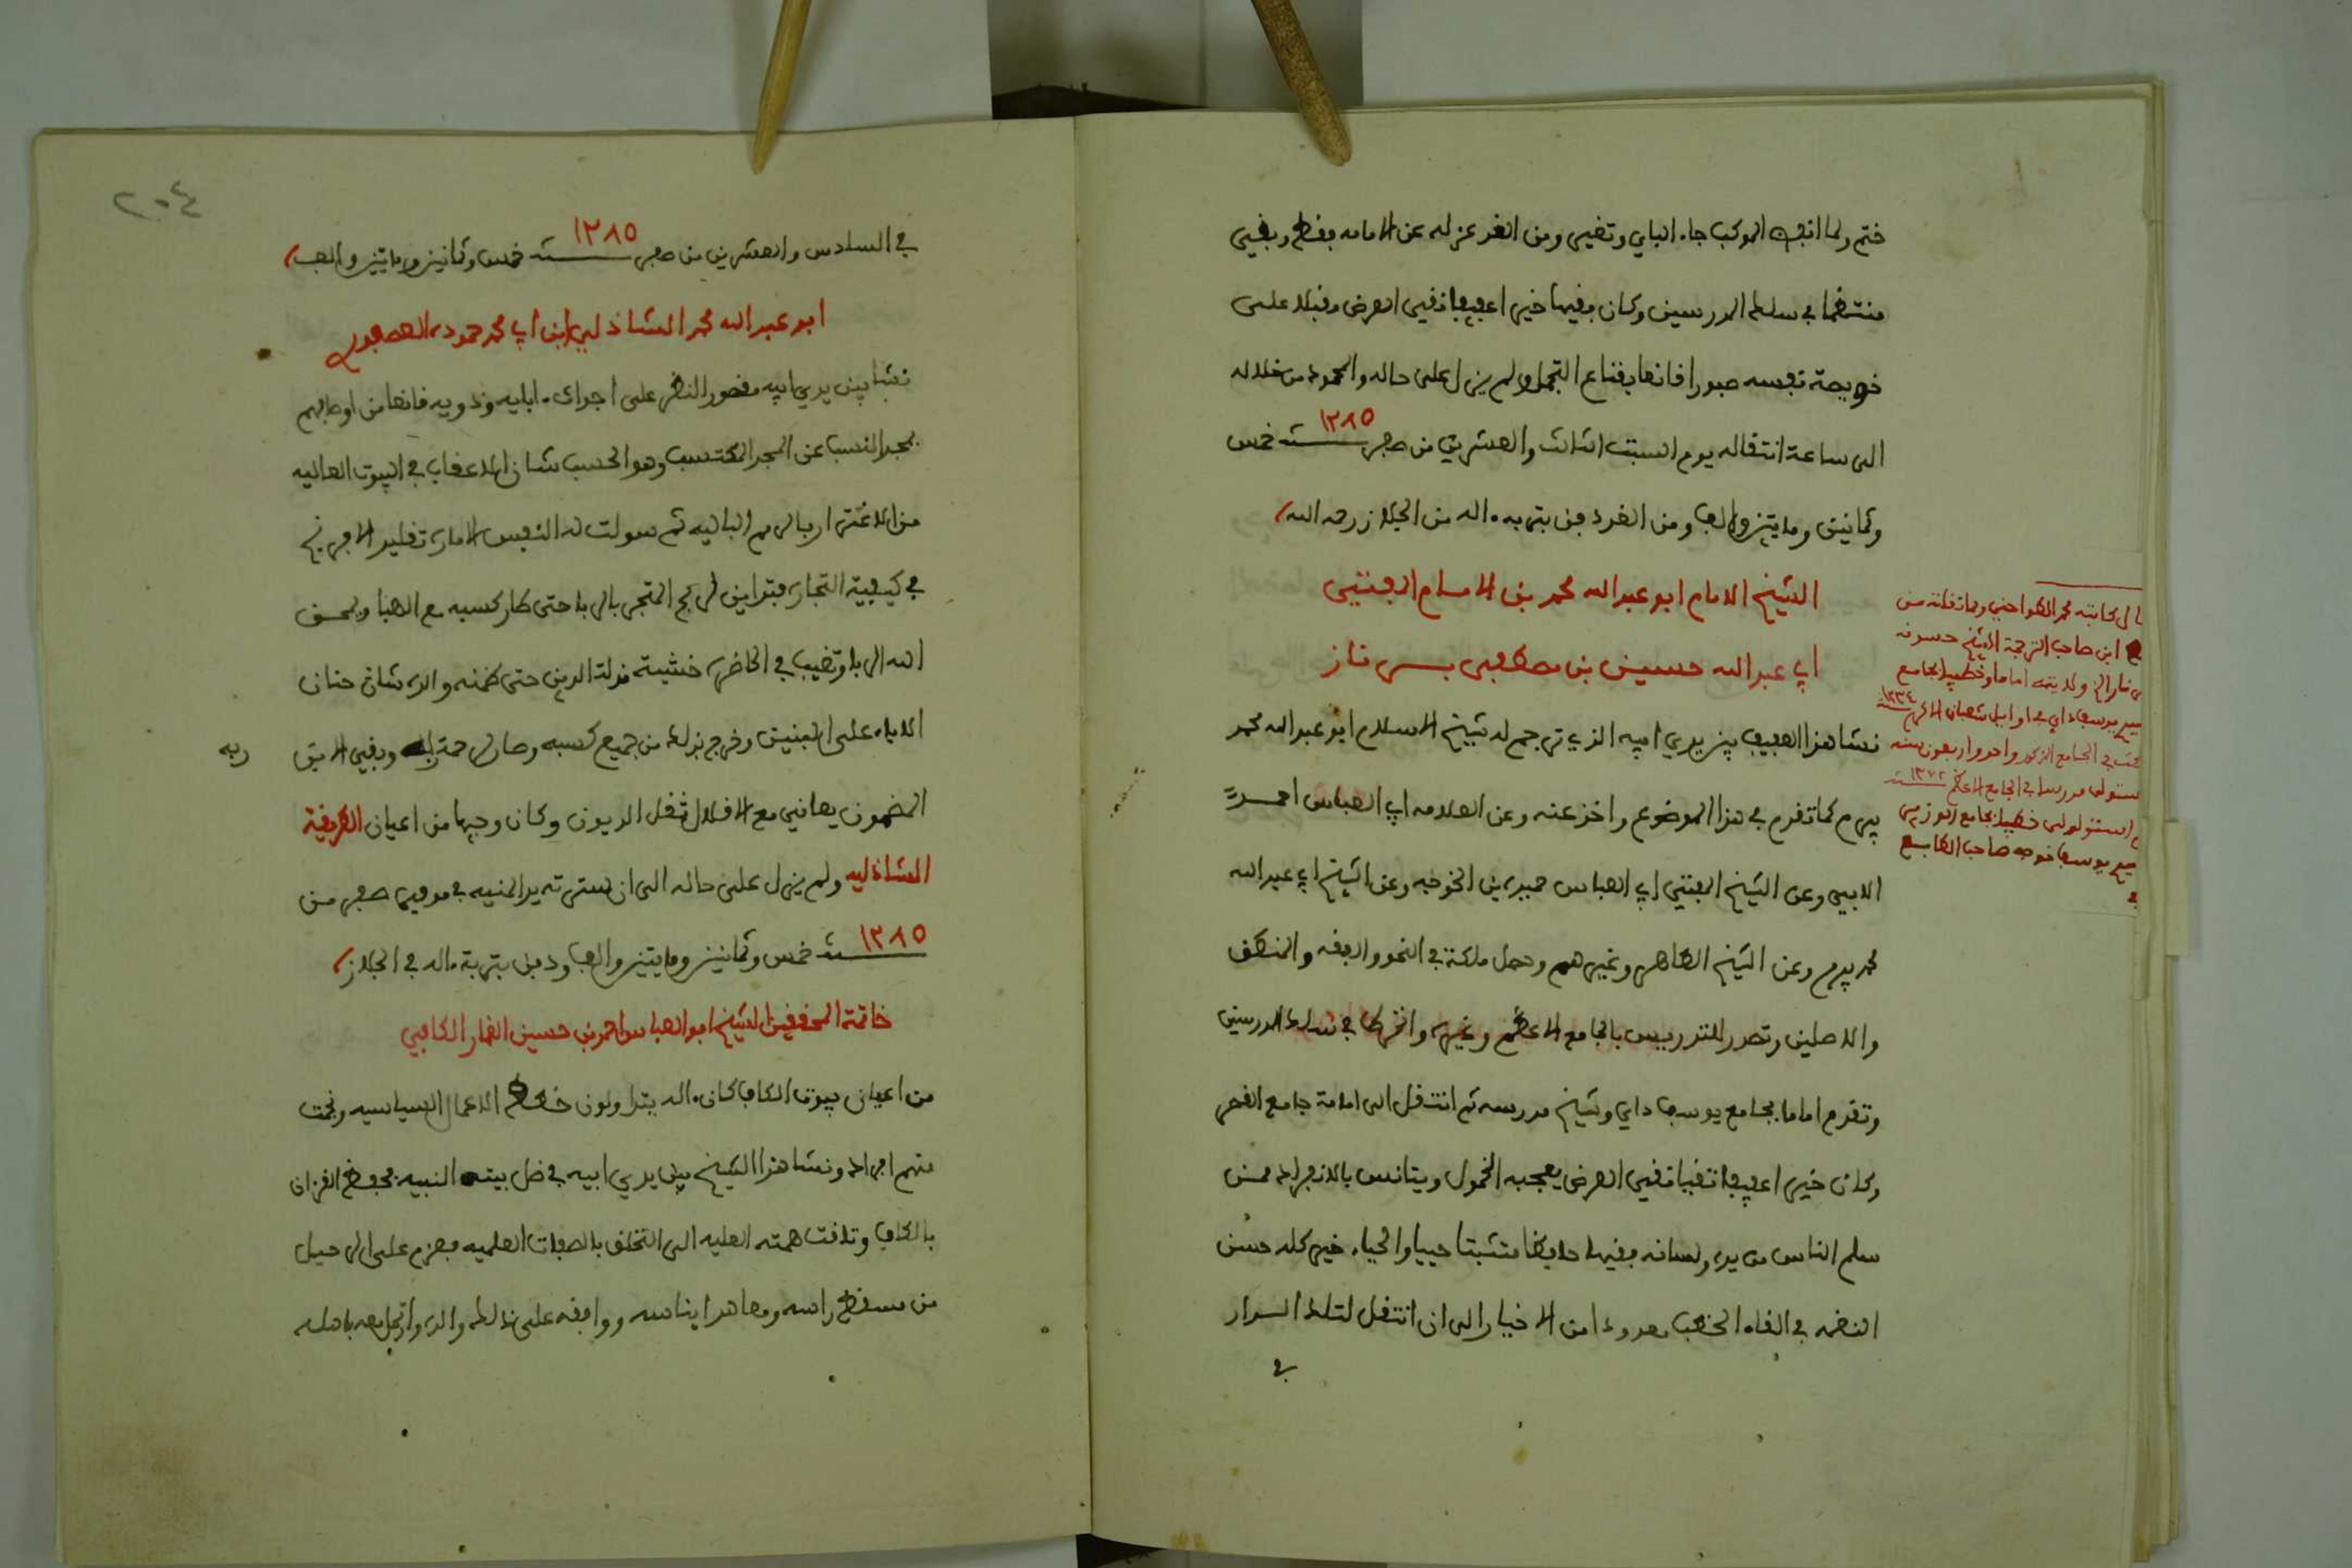 ختم ولما انفض الموكب جاء الباي وتغير ومن الغد عزله عن الامامه فقط وبقي
منتظما في سلك المدرسين وكان فقيها خيرا عفيفا نقي العرض مقبلا على
خويصة نفسه صبورا قانعا بقناع التجمل ولم يزل على حاله والمحمود من خلاله
الى ساعة انتقاله يوم السبت الثالث والعشرين من صفر سنة ١٢٨٥ خمس
وثمانين ومايتين والف ومن الغد دفن بتربة ءاله من الجلاز رحمه الله
الشيخ الامام ابو عبد الله محمد بن الامام المفتي
ابي عبد الله حسين بن مصطفى بسر ناز
نشا هذا الفقيه بين يدي ابيه الذي ترجم له شيخ الاسلام ابو عبد الله محمد
بيرم كما تقدم في هذا الموضوع واخذ عنه وعن العلامه ابي العباس احمد
الابي وعن الشيخ المفتي ابي العباس حميده بن الخوجه وعن الشيخ ابي عبد الله
محمد بيرم وعن الشيخ الطاهر وغيرهم وحصل ملكة في النحو والفقه والمنطق
والاصلين وتصدر للتدريس بالجامع الاعظم وغيره وانخرط في سلك المدرسين
وتقدم اماما بجامع يوسف داي وشيخ مدرسه ثم انتقل الى امامة جامع القصر
وكان خيرا عفيفا تقيا نقي العرض يعجبه الخمول ويتانس بالانفراد ممن
سلم الناس من يده ولسانه فقيها حافظا متثبتا حييا والحياء خير كله حسن
النغمه في القاء الخطب معدودا من الاخيار الى ان انتقل لتلك الدار
في
ابن صاحب الترجمة الشيخ حسونه
ولايته اماما وخطيبا بجامع
يوسف داي في اوايل شعبان الاكرم ١٢٣٤
في الجامع المذكور واحد واربعون سنه
مدرسا في الجامع الاعظم سنة ١٢٧٢
خطيبا بجامع الوزير
يوسف خوجه صاحب الطابع
٢٠٤
في السادس والعشرين من صفر سنة ١٢٨٥ خمس وثمانين ومايتين والف
ابو عبد الله محمد الشاذلي ابن ابي محمد حمودة العصفوري
نشا بين يدي ابيه مقصور النظر على اجواد ءابايه وذويه قانعا من اوصافهم
بمجد النسب عن المجد المكتسب وهو الحسب شان الاعقاب في البيوت العاليه
من الاغترار بالرمم الباليه ثم سولت له النفس الاماره تقليد الافرنج
في كيفية التجاره فتداين لربح المتجر بالربا حتى طار كسبه مع الهبا ومحق
الله الربا وتغيب في الحاضره خشية مذلة الدين حتى ضمنه والده شان حنان
الاباء على البنين وخرج بذلك من جميع كسبه وصار لرحمة ربه وبقي الابن
ربه
المضمون يعاني مع الاقلال ثقل الديون وكان وجيها من اعيان الطريقة
الشاذليه ولم يزل على حاله الى ان استرته يد المنيه في موفى صفر من
سنة ١٢٨٥ خمس وثمانين ومايتين والف ودفن بتربة ءاله في الجلاز
خاتمة المحققين الشيخ ابو العباس احمد بن حسين القمار الكافي
من اعيان بيوت الكاف كان ءاله يتداولون خطط الاعمال السياسيه ونجحت
منهم افراد ونشا هذا الشيخ بين يدي ابيه في ظل بيته النبيه فحفظ القرءان
بالكاف وتاقت همته العليه الى التخلق بالصفات العلميه فعزم على الرحيل
من مسقط راسه ومعاهد ايناسه ووافقه على ذالك والده وارتحل معه باهله